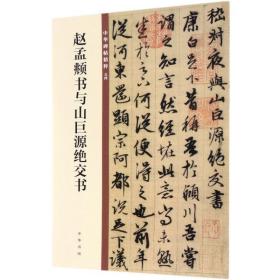 嵇叔夜與山巨源絕交書
康白足下昔稱吾於潁川吾嘗
謂之知言然經怪此意
何從便得之也前年
從河東還顯宗阿都說足下議
中华碑帖精粹
赵孟頫书与山巨源绝交书
中华书局